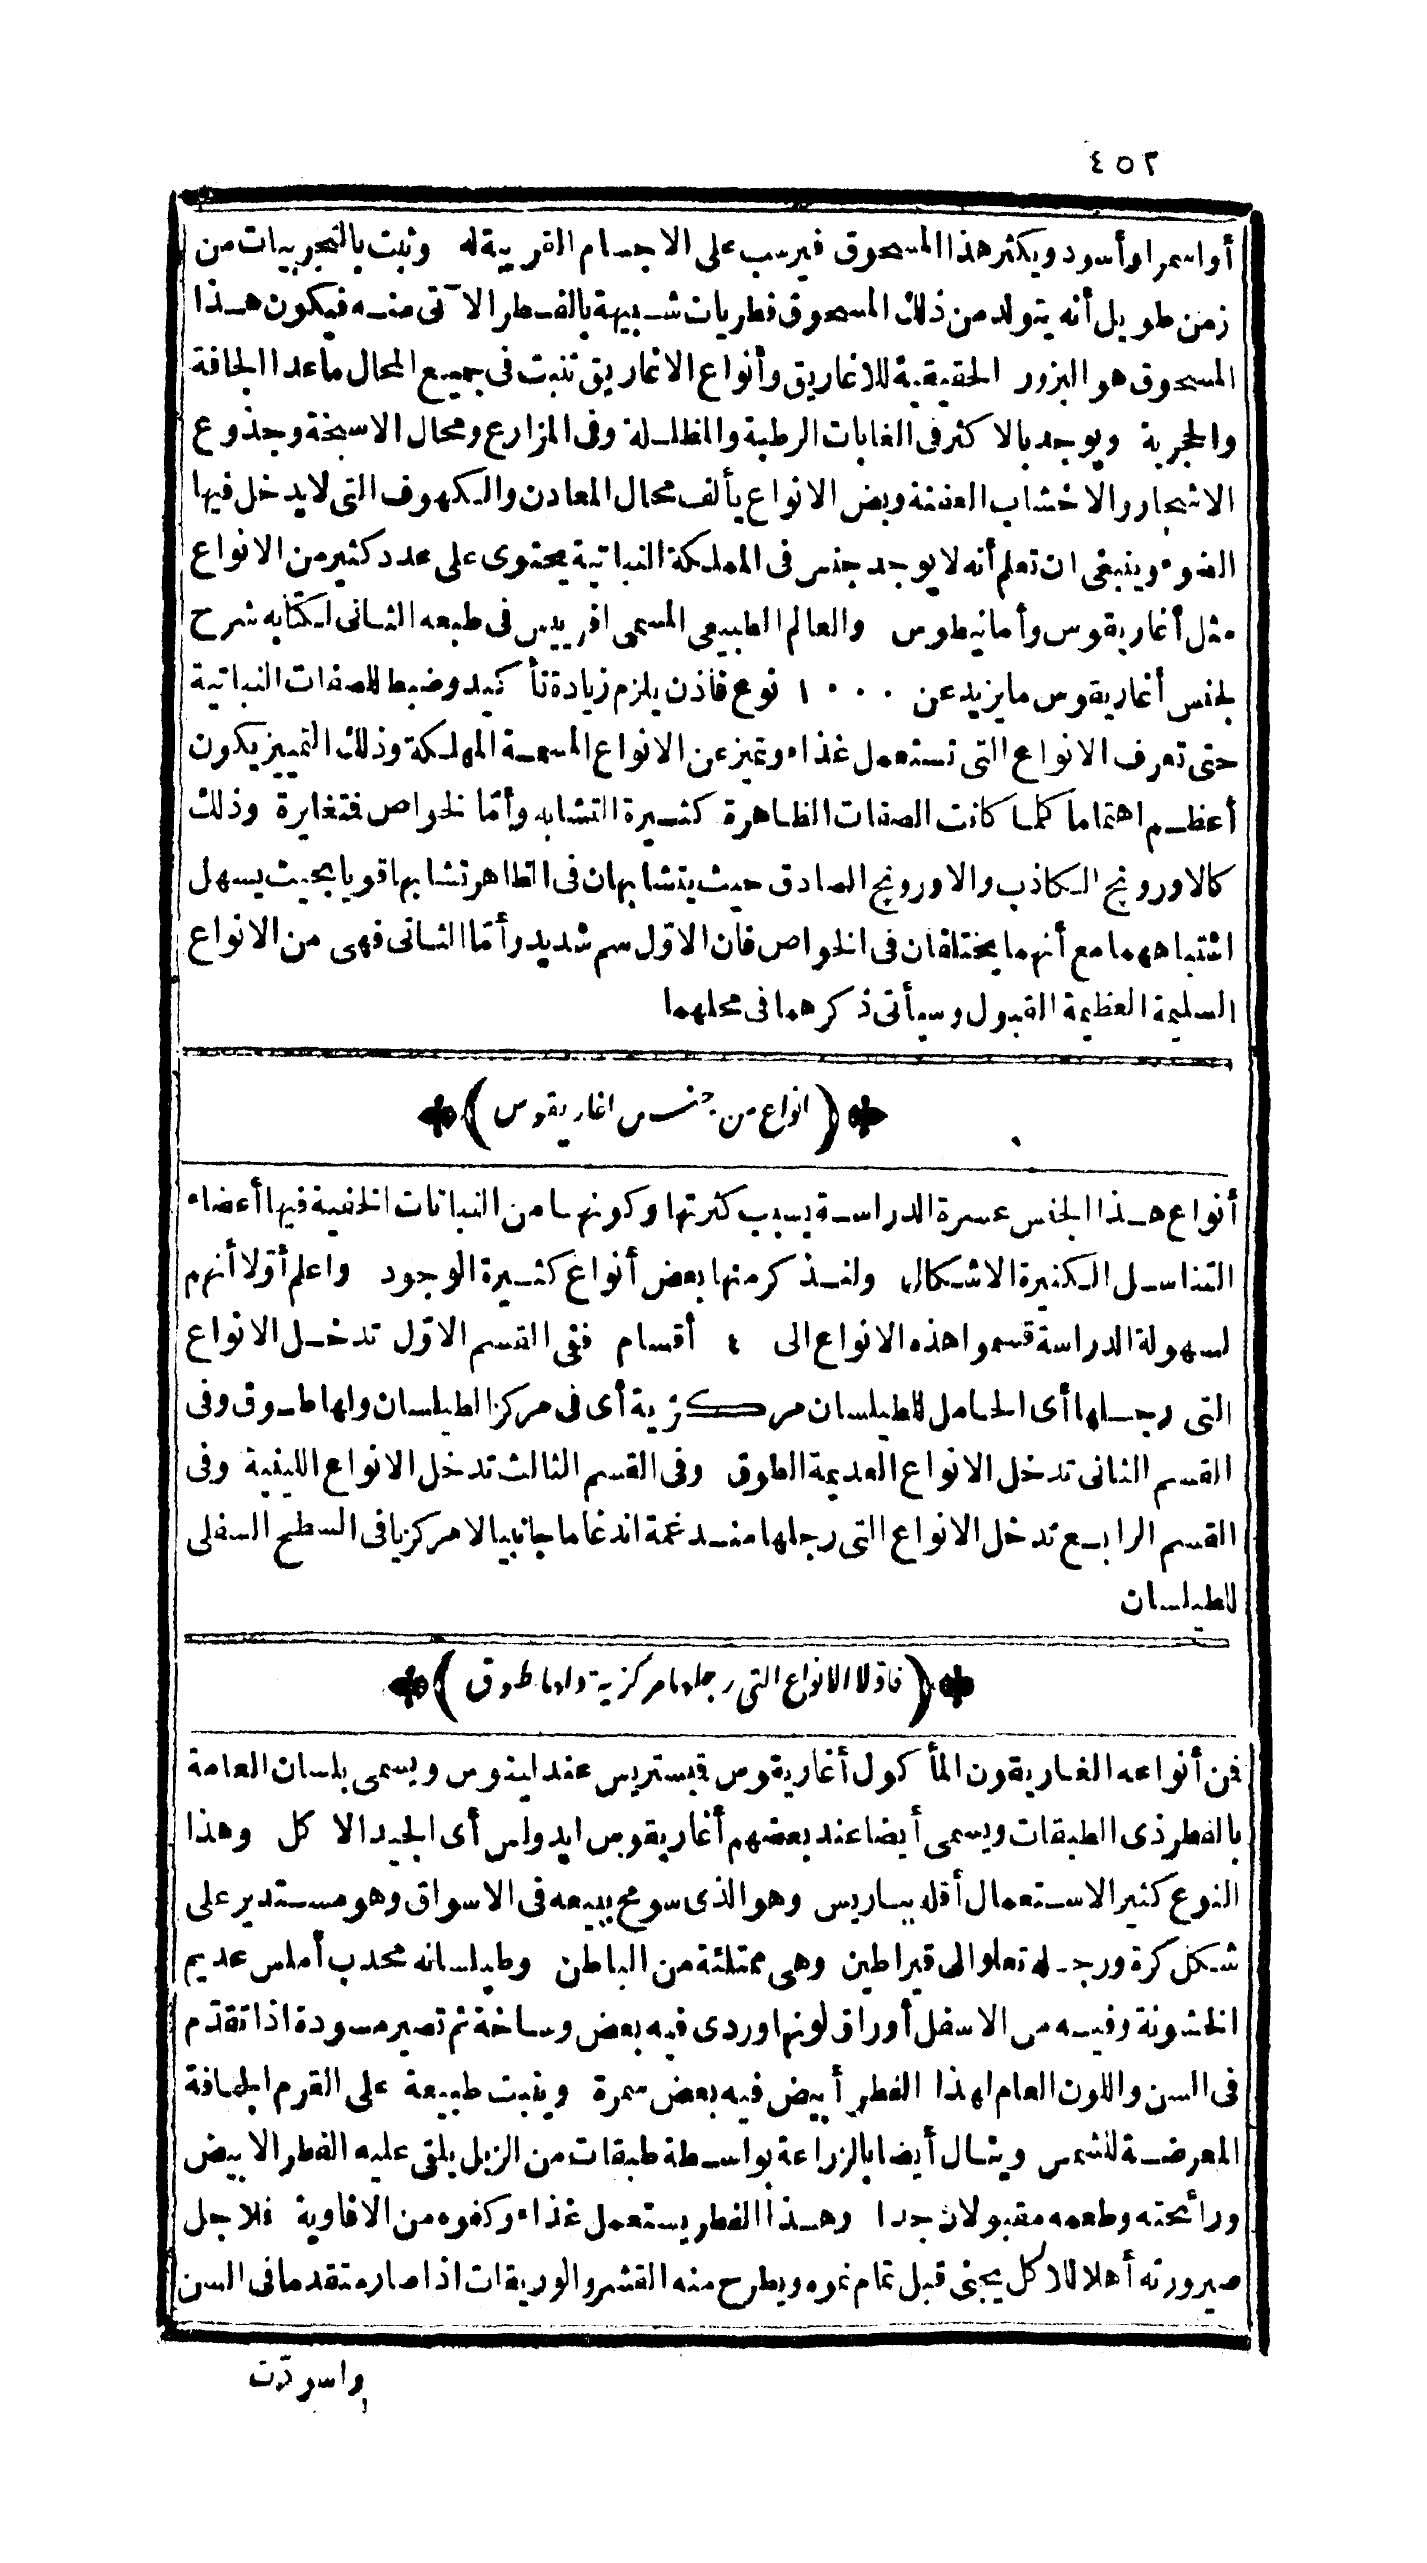 ٤٥٢
أو اسمر او أسود ويكثر هذا المسحوق فيرسب على الاجسام القريبة له وثبت بالتجربيات من
زمن طويل أنه يتولد من ذلك المسحوق فطريات شبيهة بالفطر الآتى منه فيكون هذا
المسحوق هو البزور الحقيقية للاغاريق وأنواع الاغاريق تنبت فى جميع المحال ماعدا الجافة
والحجرية ويوجد بالاكثر فى الغابات الرطبة والمظللة وفى المزارع ومحال الاسبخة وجذوع
الاشجار والاخشاب العفنة وبعض الانواع يألف محال المعادن والكهوف التى لا يدخل فيها
الضوء وينبغى ان تعلم أنه لا يوجد جنس فى المملكة النباتية يحتوى على عدد كثير من الانواع
مثل أغاريقوس وأمانيطوس والعالم الطبيعى المسمى افرييس فى طبعه الثانى لكتابه شرح
لجنس أغاريقوس ما يزيد عن ١٠٠٠ نوع فاذن يلزم زيادة تأكيد وضبط للصفات النباتية
حتى تعرف الانواع التى تستعمل غذاء وتميز عن الانواع المسمة المهلكة وذلك التمييز يكون
أعظم اهتماما كلما كانت الصفات الظاهرة كثيرة التشابه وأمّا الخواص فمتغايرة وذلك
كالاورونج الكاذب والاورونج الصادق حيث يتشابهان فى الظاهر تشابها قويا بحيث يسهل
اشتباههما مع أنهما يختلفان فى الخواص فان الاوّل سم شديد وأمّا الثانى فهى من الانواع
السليمة العظيمة القبول وسيأتى ذكرهما فى محلهما
(انواع من جنس اغاريقوس)
أنواع هذا الجنس عسرة الدراسة بسبب كثرتها وكونها من النباتات الخفية فيها أعضاء
التناسل الكثيرة الاشكال ولنذكر منها بعض أنواع كثيرة الوجود واعلم أوّلا أنهم
لسهولة الدراسة قسموا هذه الانواع الى ٤ أقسام ففى القسم الاوّل تدخل الانواع
التى رجلها أى الحامل للطيلسان مركزية أى فى مركز الطيلسان ولها طوق وفى
القسم الثانى تدخل الانواع العديمة الطوق وفى القسم الثالث تدخل الانواع الليفية وفى
القسم الرابع تدخل الانواع التى رجلها مندغمة اندغاما جانبيا لا مركزيا فى السطح السفلى
للطيلسان
(فاوّلا الانواع التى رجلها مركزية ولها طوق)
فمن أنواعه الغاريقون المأكول أغاريقوس قبستريس عند لينوس ويسمى بلسان العامة
بالفطر ذى الطبقات ويسمى أيضا عند بعضهم أغاريقوس ايدولس أى الجيد الاكل وهذا
النوع كثير الاستعمال أقله بباريس وهو الذى سومح ببيعه فى الاسواق وهو مستدير على
شكل كرة ورجله تعلو الى قيراطين وهى ممتلئة من الباطن وطيلسانه محدب أملس عديم
الخشونة وفيه من الاسفل أوراق لونها وردى فيه بعض وساخة ثم تصير مسودة اذا تقدّم
فى السن واللون العام لهذا الفطر أبيض فيه بعض سمرة وينبت طبيعة على القرم الجافة
المعرضة للشمس وينال أيضا بالزراعة بواسطة طبقات من الزبل يلقى عليه الفطر الابيض
ورائحته وطعمه مقبولان جدا وهذا الفطر يستعمل غذاء وكغيره من الافاوية فلاجل
صيرورته أهلا للاكل يجنى قبل تمام نموه ويطرح منه القشر والوريقات اذا صار متقدما فى السن
واسودّت